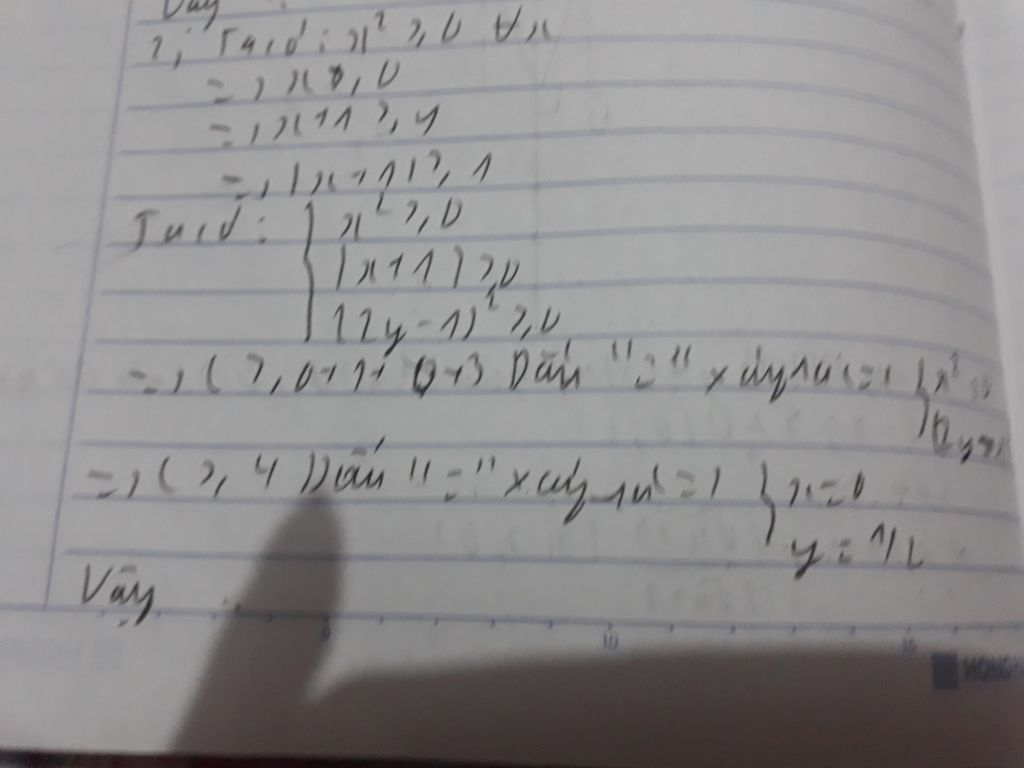 Vậy
2, Ta có: x² ≥ 0 ∀x
=> x ≥ 0
=> x+1 ≥ 1
=> |x+1| ≥ 1
Ta có: { x² ≥ 0
|x+1| ≥ 0
(2y-1)² ≥ 0
=> C ≥ 0+1+0+3 Dấu "=" xảy ra <=> { x²
=> C ≥ 4 Dấu "=" xảy ra <=> { x=0
y = 1/2
Vậy
10